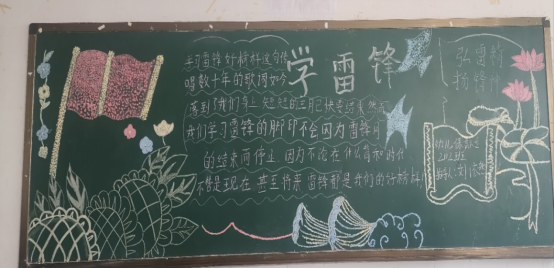 学雷锋
学习雷锋好榜样这句传
唱数十年的歌词如今
落到了我们身上 短短的三月已快要过去 然而
我们学习雷锋的脚印不会因为雷锋月
的结束而停止 因为不论在什么时候
不管是现在 甚至将来 雷锋都是我们的好榜样
弘雷锋
扬精神
202班